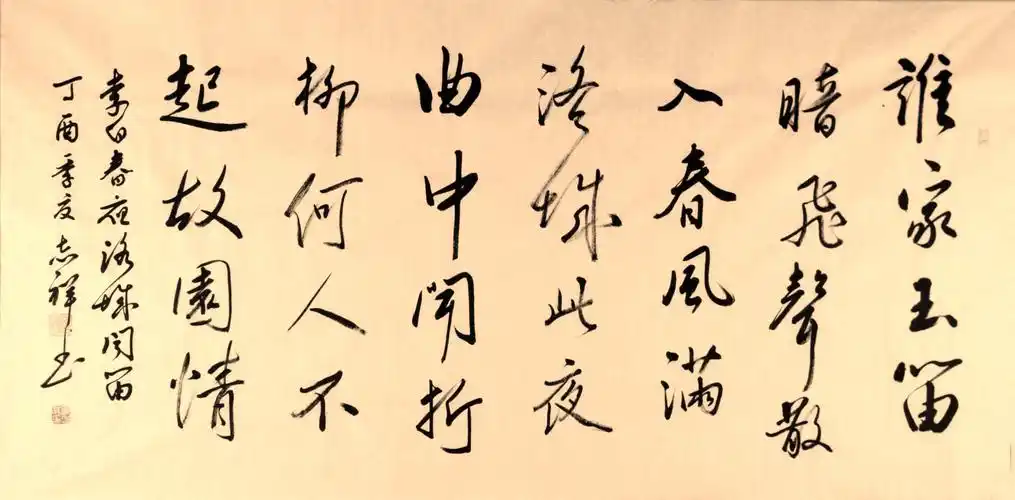 誰家玉笛
暗飛聲散
入春風滿
洛城此夜
曲中聞折
柳何人不
起故園情
李白春夜洛城聞笛
丁酉季夏志祥书